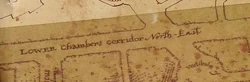 Lower Chambers corridor North-East